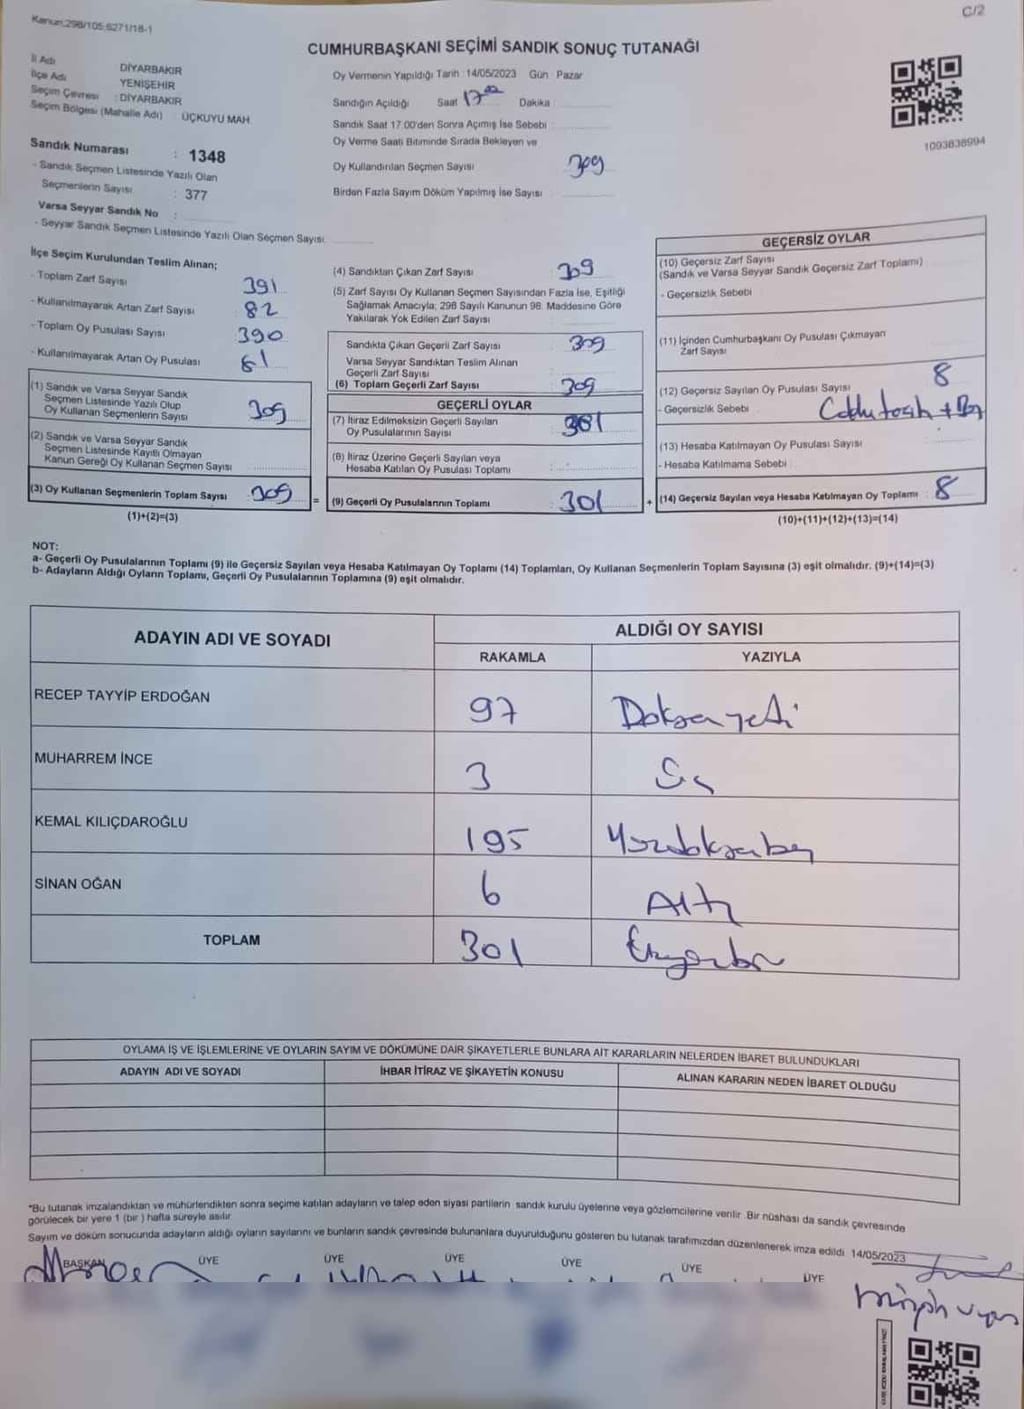 Kanun:298/105,6271/18-1
C/2
CUMHURBAŞKANI SEÇİMİ SANDIK SONUÇ TUTANAĞI
İl Adı DİYARBAKIR
İlçe Adı YENİŞEHİR
Seçim Çevresi : DİYARBAKIR
Seçim Bölgesi (Mahalle Adı) ÜÇKUYU MAH.
Sandık Numarası : 1348
- Sandık Seçmen Listesinde Yazılı Olan
Seçmenlerin Sayısı : 377
Varsa Seyyar Sandık No :
- Seyyar Sandık Seçmen Listesinde Yazılı Olan Seçmen Sayısı
Oy Vermenin Yapıldığı Tarih : 14/05/2023 Gün Pazar
Sandığın Açıldığı Saat 17 00 Dakika
Sandık Saat 17.00'den Sonra Açımış İse Sebebi
Oy Verme Saati Bitiminde Sırada Bekleyen ve
Oy Kullandırılan Seçmen Sayısı 309
Birden Fazla Sayım Döküm Yapılmış İse Sayısı
1093838994
İlçe Seçim Kurulundan Teslim Alınan;
- Toplam Zarf Sayısı 391
- Kullanılmayarak Artan Zarf Sayısı 82
- Toplam Oy Pusulası Sayısı 390
- Kullanılmayarak Artan Oy Pusulası 81
(1) Sandık ve Varsa Seyyar Sandık
Seçmen Listesinde Yazılı Olup
Oy Kullanan Seçmenlerin Sayısı 309
(2) Sandık ve Varsa Seyyar Sandık
Seçmen Listesinde Kayıtlı Olmayan
Kanun Gereği Oy Kullanan Seçmen Sayısı
(3) Oy Kullanan Seçmenlerin Toplam Sayısı 309
(1)+(2)=(3)
(4) Sandıktan Çıkan Zarf Sayısı 309
(5) Zarf Sayısı Oy Kullanan Seçmen Sayısından Fazla İse, Eşitliği
Sağlamak Amacıyla; 298 Sayılı Kanunun 98. Maddesine Göre
Yakılarak Yok Edilen Zarf Sayısı
Sandıkta Çıkan Geçerli Zarf Sayısı 309
Varsa Seyyar Sandıktan Teslim Alınan
Geçerli Zarf Sayısı
(6) Toplam Geçerli Zarf Sayısı 309
GEÇERLİ OYLAR
(7) İtiraz Edilmeksizin Geçerli Sayılan
Oy Pusulalarının Sayısı 301
(8) İtiraz Üzerine Geçerli Sayılan veya
Hesaba Katılan Oy Pusulası Toplamı
= (9) Geçerli Oy Pusulalarının Toplamı 301 +
GEÇERSİZ OYLAR
(10) Geçersiz Zarf Sayısı
(Sandık ve Varsa Seyyar Sandık Geçersiz Zarf Toplamı)
- Geçersizlik Sebebi
(11) İçinden Cumhurbaşkanı Oy Pusulası Çıkmayan
Zarf Sayısı
(12) Geçersiz Sayılan Oy Pusulası Sayısı 8
- Geçersizlik Sebebi
(13) Hesaba Katılmayan Oy Pusulası Sayısı
- Hesaba Katılmama Sebebi
(14) Geçersiz Sayılan veya Hesaba Katılmayan Oy Toplamı 8
(10)+(11)+(12)+(13)=(14)
NOT:
a- Geçerli Oy Pusulalarının Toplamı (9) ile Geçersiz Sayılan veya Hesaba Katılmayan Oy Toplamı (14) Toplamları, Oy Kullanan Seçmenlerin Toplam Sayısına (3) eşit olmalıdır. (9)+(14)=(3)
b- Adayların Aldığı Oyların Toplamı, Geçerli Oy Pusulalarının Toplamına (9) eşit olmalıdır.
ADAYIN ADI VE SOYADI
ALDIĞI OY SAYISI
RAKAMLA YAZIYLA
RECEP TAYYİP ERDOĞAN 97 Doksan yedi
MUHARREM İNCE 3 Üç
KEMAL KILIÇDAROĞLU 195 Yüzdoksanbeş
SİNAN OĞAN 6 Altı
TOPLAM 301
OYLAMA İŞ VE İŞLEMLERİNE VE OYLARIN SAYIM VE DÖKÜMÜNE DAİR ŞİKAYETLERLE BUNLARA AİT KARARLARIN NELERDEN İBARET BULUNDUKLARI
ADAYIN ADI VE SOYADI
İHBAR İTİRAZ VE ŞİKAYETİN KONUSU
ALINAN KARARIN NEDEN İBARET OLDUĞU
*Bu tutanak imzalandıktan ve mühürlendikten sonra seçime katılan adayların ve talep eden siyasi partilerin sandık kurulu üyelerine veya gözlemcilerine verilir. Bir nüshası da sandık çevresinde
görülecek bir yere 1 (bir) hafta süreyle asılır.
Sayım ve döküm sonucunda adayların aldığı oyların sayılarını ve bunların sandık çevresinde bulunanlara duyurulduğunu gösteren bu tutanak tarafımızdan düzenlenerek imza edildi. 14/05/2023
BAŞKAN ÜYE ÜYE ÜYE ÜYE ÜYE ÜYE